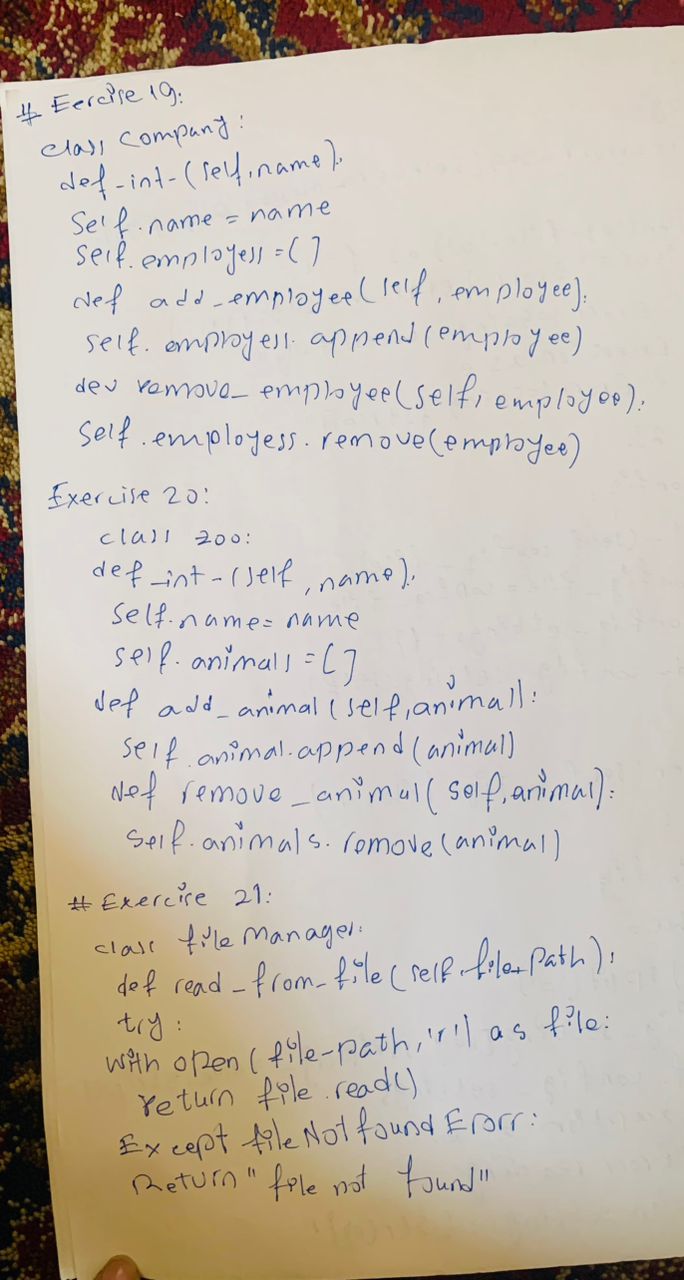 # Eercise 19:
class company:
def_int-(self,name):
Self.name = name
self.employess = []
def add_employee(self, employee):
self. employess. append(employee)
dev remove_employee(self, employee):
Self.employess.remove(employee)
Exercise 20:
class zoo:
def_int-(self, name):
self.name = name
self.animals = []
def add_animal(self,animal):
self.animal.append(animal)
def remove_animal(self,animal):
self.animals.remove(animal)
# Exercise 21:
class file Manager:
def read_from_file(self.file_path):
try:
with open(file-path,'r') as file:
return file.read()
Except file Not found Erorr:
Return "file not found"